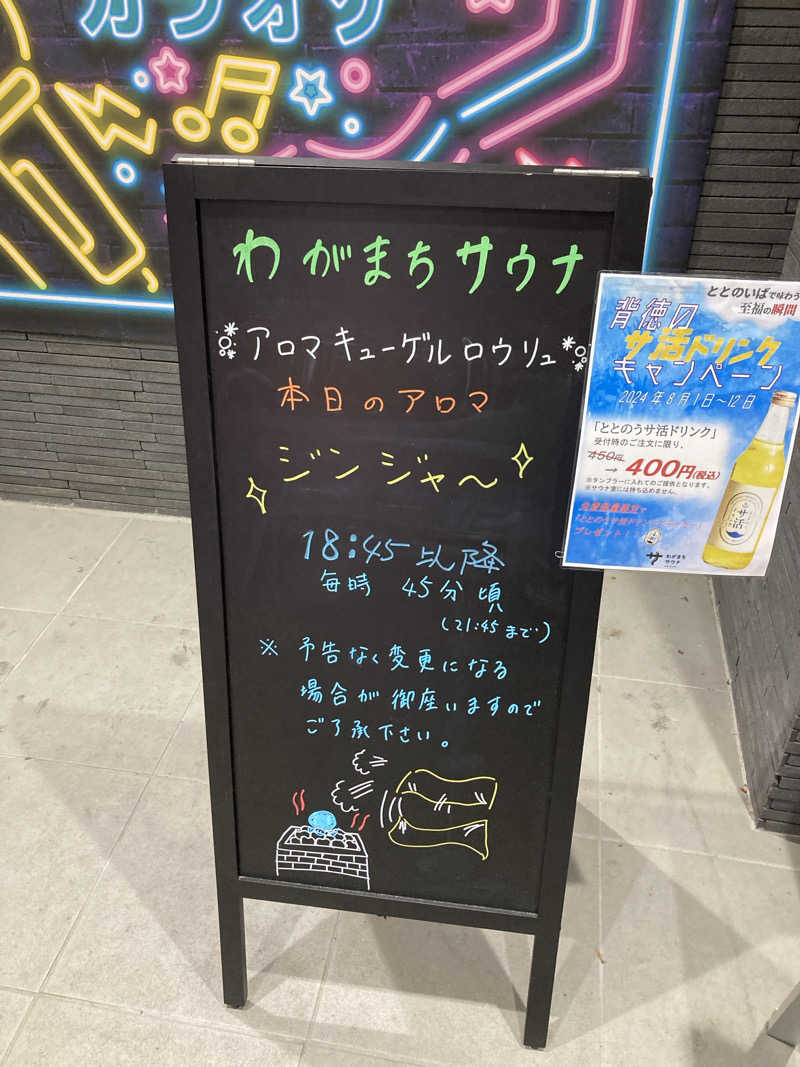 カラオケ
わがまちサウナ
アロマキューゲルロウリュ
本日のアロマ
ジンジャ～
18:45以降
毎時 45分頃
(21:45まで)
※ 予告なく変更になる
場合が御座いますので
ご了承下さい。
ととのいばで味わう
至福の瞬間
背徳の
サ活ドリンク
キャンペーン
2024年8月1日～12日
「ととのうサ活ドリンク」
受付時のご注文に限り、
450円
→ 400円(税込)
※タンブラーに入れてのご提供となります。
※サウナ室には持ち込めません。
プレゼント!
サ活
サ
わがまち
サウナ